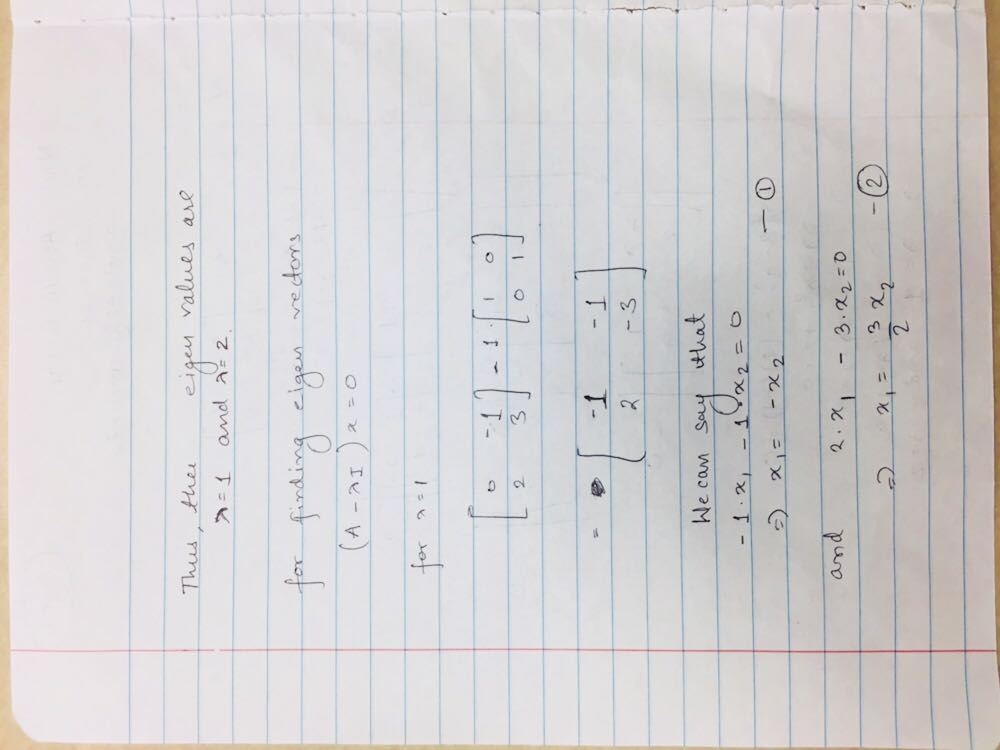 Thus, thee eigen values are
λ=1 and λ=2.
for finding eigen vectors
(A - λI)x = 0
for λ=1
[0 -1] - 1·[1 0]
[2 3] [0 1]
= [-1 -1]
[2 -3]
We can say that
-1·x₁ - 1·x₂ = 0
=) x₁ = -x₂ — ①
and 2·x₁ - 3·x₂ = 0
=) x₁ = 3x₂/2 - ②